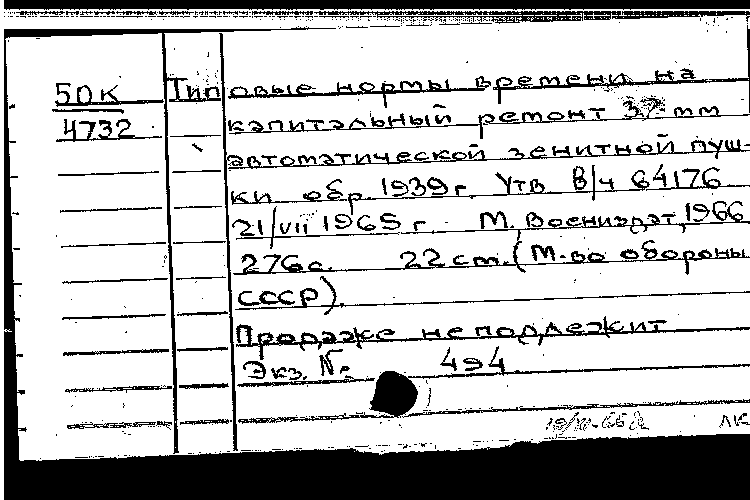 50К Типовые нормы времени на
4732 капитальный ремонт 37 mm
автоматической зенитной пуш-
ки обр. 1939 г. Утв. В/ч 64176
21/VII 1965 г. М. Воениздат, 1966
276 с. 22 cm. (М-во обороны
СССР).
Продаже не подлежит
Экз. №. 494.
ЛК